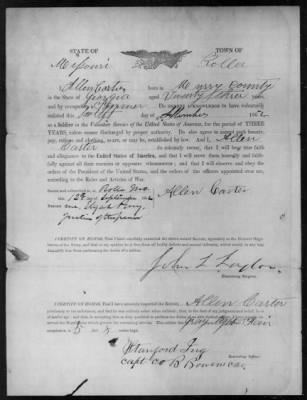 STATE OF TOWN OF
Missouri Rolla
I, Allen Carter born in Murry County
in the State of Georgia aged Twenty three years,
and by occupation a Farmer Do HEREBY ACKNOWLEDGE to have voluntarily
enlisted this day of September 1862
as a Soldier in the Volunteer Service of the United States of America, for the period of THREE
YEARS, unless sooner discharged by proper authority. Do also agree to accept such bounty,
pay, rations and clothing, as are, or may be, established by law. And I, Allen
Carter do solemnly swear, that I will bear true faith
and allegiance to the United States of America, and that I will serve them honestly and faithfully
against all their enemies or opposers whomsoever; and that I will observe and obey the
orders of the President of the United States, and the orders of the officers appointed over me,
according to the Rules and Articles of War.
Sworn and subscribed to, at Rolla Mo.
this 12 day of September 1862 Allen Carter
Before
Justice of the peace
I CERTIFY ON HONOR, That I have carefully examined the above named Recruit, agreeably to the General Regulations
of the Army, and that in my opinion he is free from all bodily defects and mental infirmity, which would in any way
disqualify him from performing the duties of a soldier.
John L
Examining Surgeon.
I CERTIFY ON HONOR, That I have minutely inspected the Recruit, Allen Carter
previously to his enlistment, and that he was entirely sober when enlisted; that, to the best of my judgment and belief, he is
of lawful age; and that, in accepting him as duly qualified to perform the duties of an able-bodied soldier, I have strictly
observed the Regulations which govern the recruiting service. This soldier has
complexion; is feet inches high.
Stanford Ing
Capt Co B Bowen Cav
Recruiting Officer.